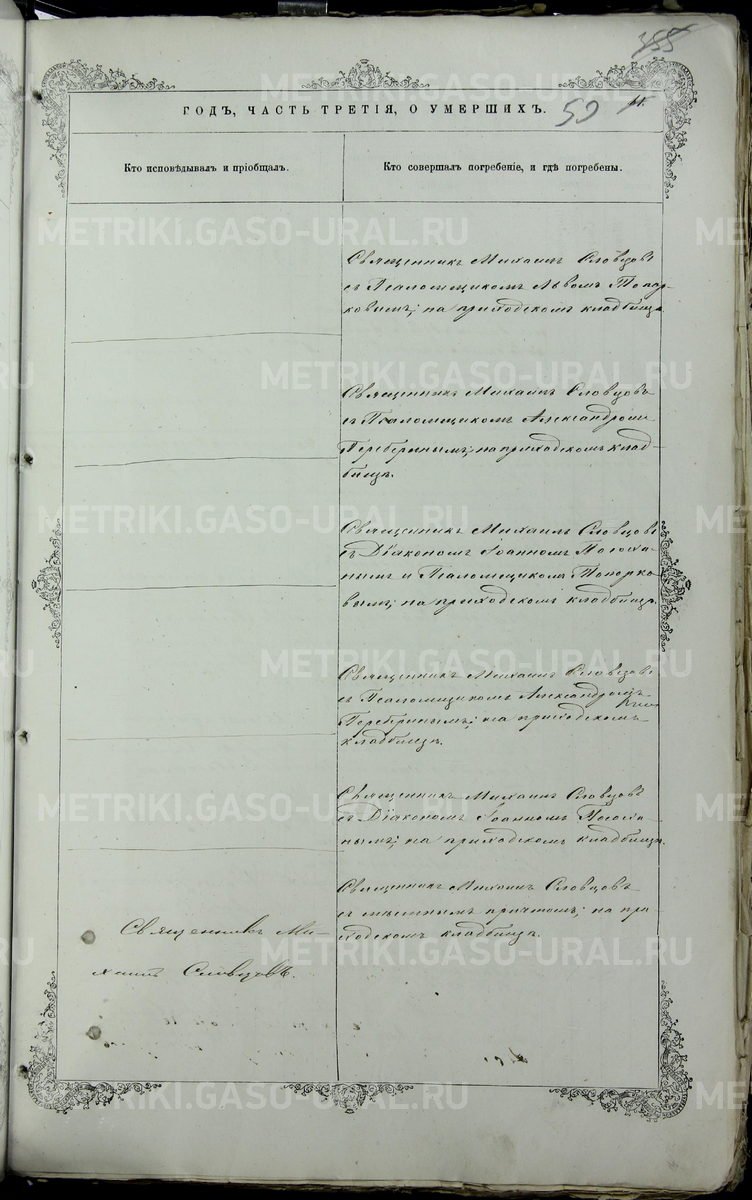 355
ГОДЪ, ЧАСТЬ ТРЕТІЯ, О УМЕРШИХЪ.
59
Кто исповѣдывалъ и пріобщалъ.
Кто совершалъ погребеніе, и гдѣ погребены.
Священникъ Михаилъ Словцовъ
съ Псаломщикомъ Львомъ Топор-
ковымъ; на приходскомъ кладбищѣ
Священникъ Михаилъ Словцовъ
съ Псаломщикомъ Александромъ
на приходскомъ клад-
бищѣ.
Священникъ Михаилъ Словцовъ
съ Діакономъ Іоанномъ
и Псаломщикомъ Топорко-
вымъ; на приходскомъ кладбищѣ.
Священникъ Михаилъ Словцовъ
съ Псаломщикомъ Александромъ
на приходскомъ
кладбищѣ.
Священникъ Михаилъ Словцовъ
съ Діакономъ Іоанномъ
на приходскомъ кладбищѣ.
Священникъ Михаилъ Словцовъ
съ причтомъ; на при-
ходскомъ кладбищѣ.
Священникъ Ми-
хаилъ Словцовъ.
METRIKI.GASO-URAL.RU